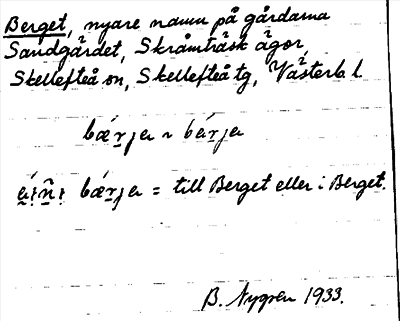 Berget, nyare namn på gårdarna
Sandgärdet, Skråmträsk ägor,
Skellefteå sn, Skellefteå tg, Västerb. l.
bǽrja ~ bǽrja
bǽrja = till Berget eller i Berget.
B. Nygren 1933.